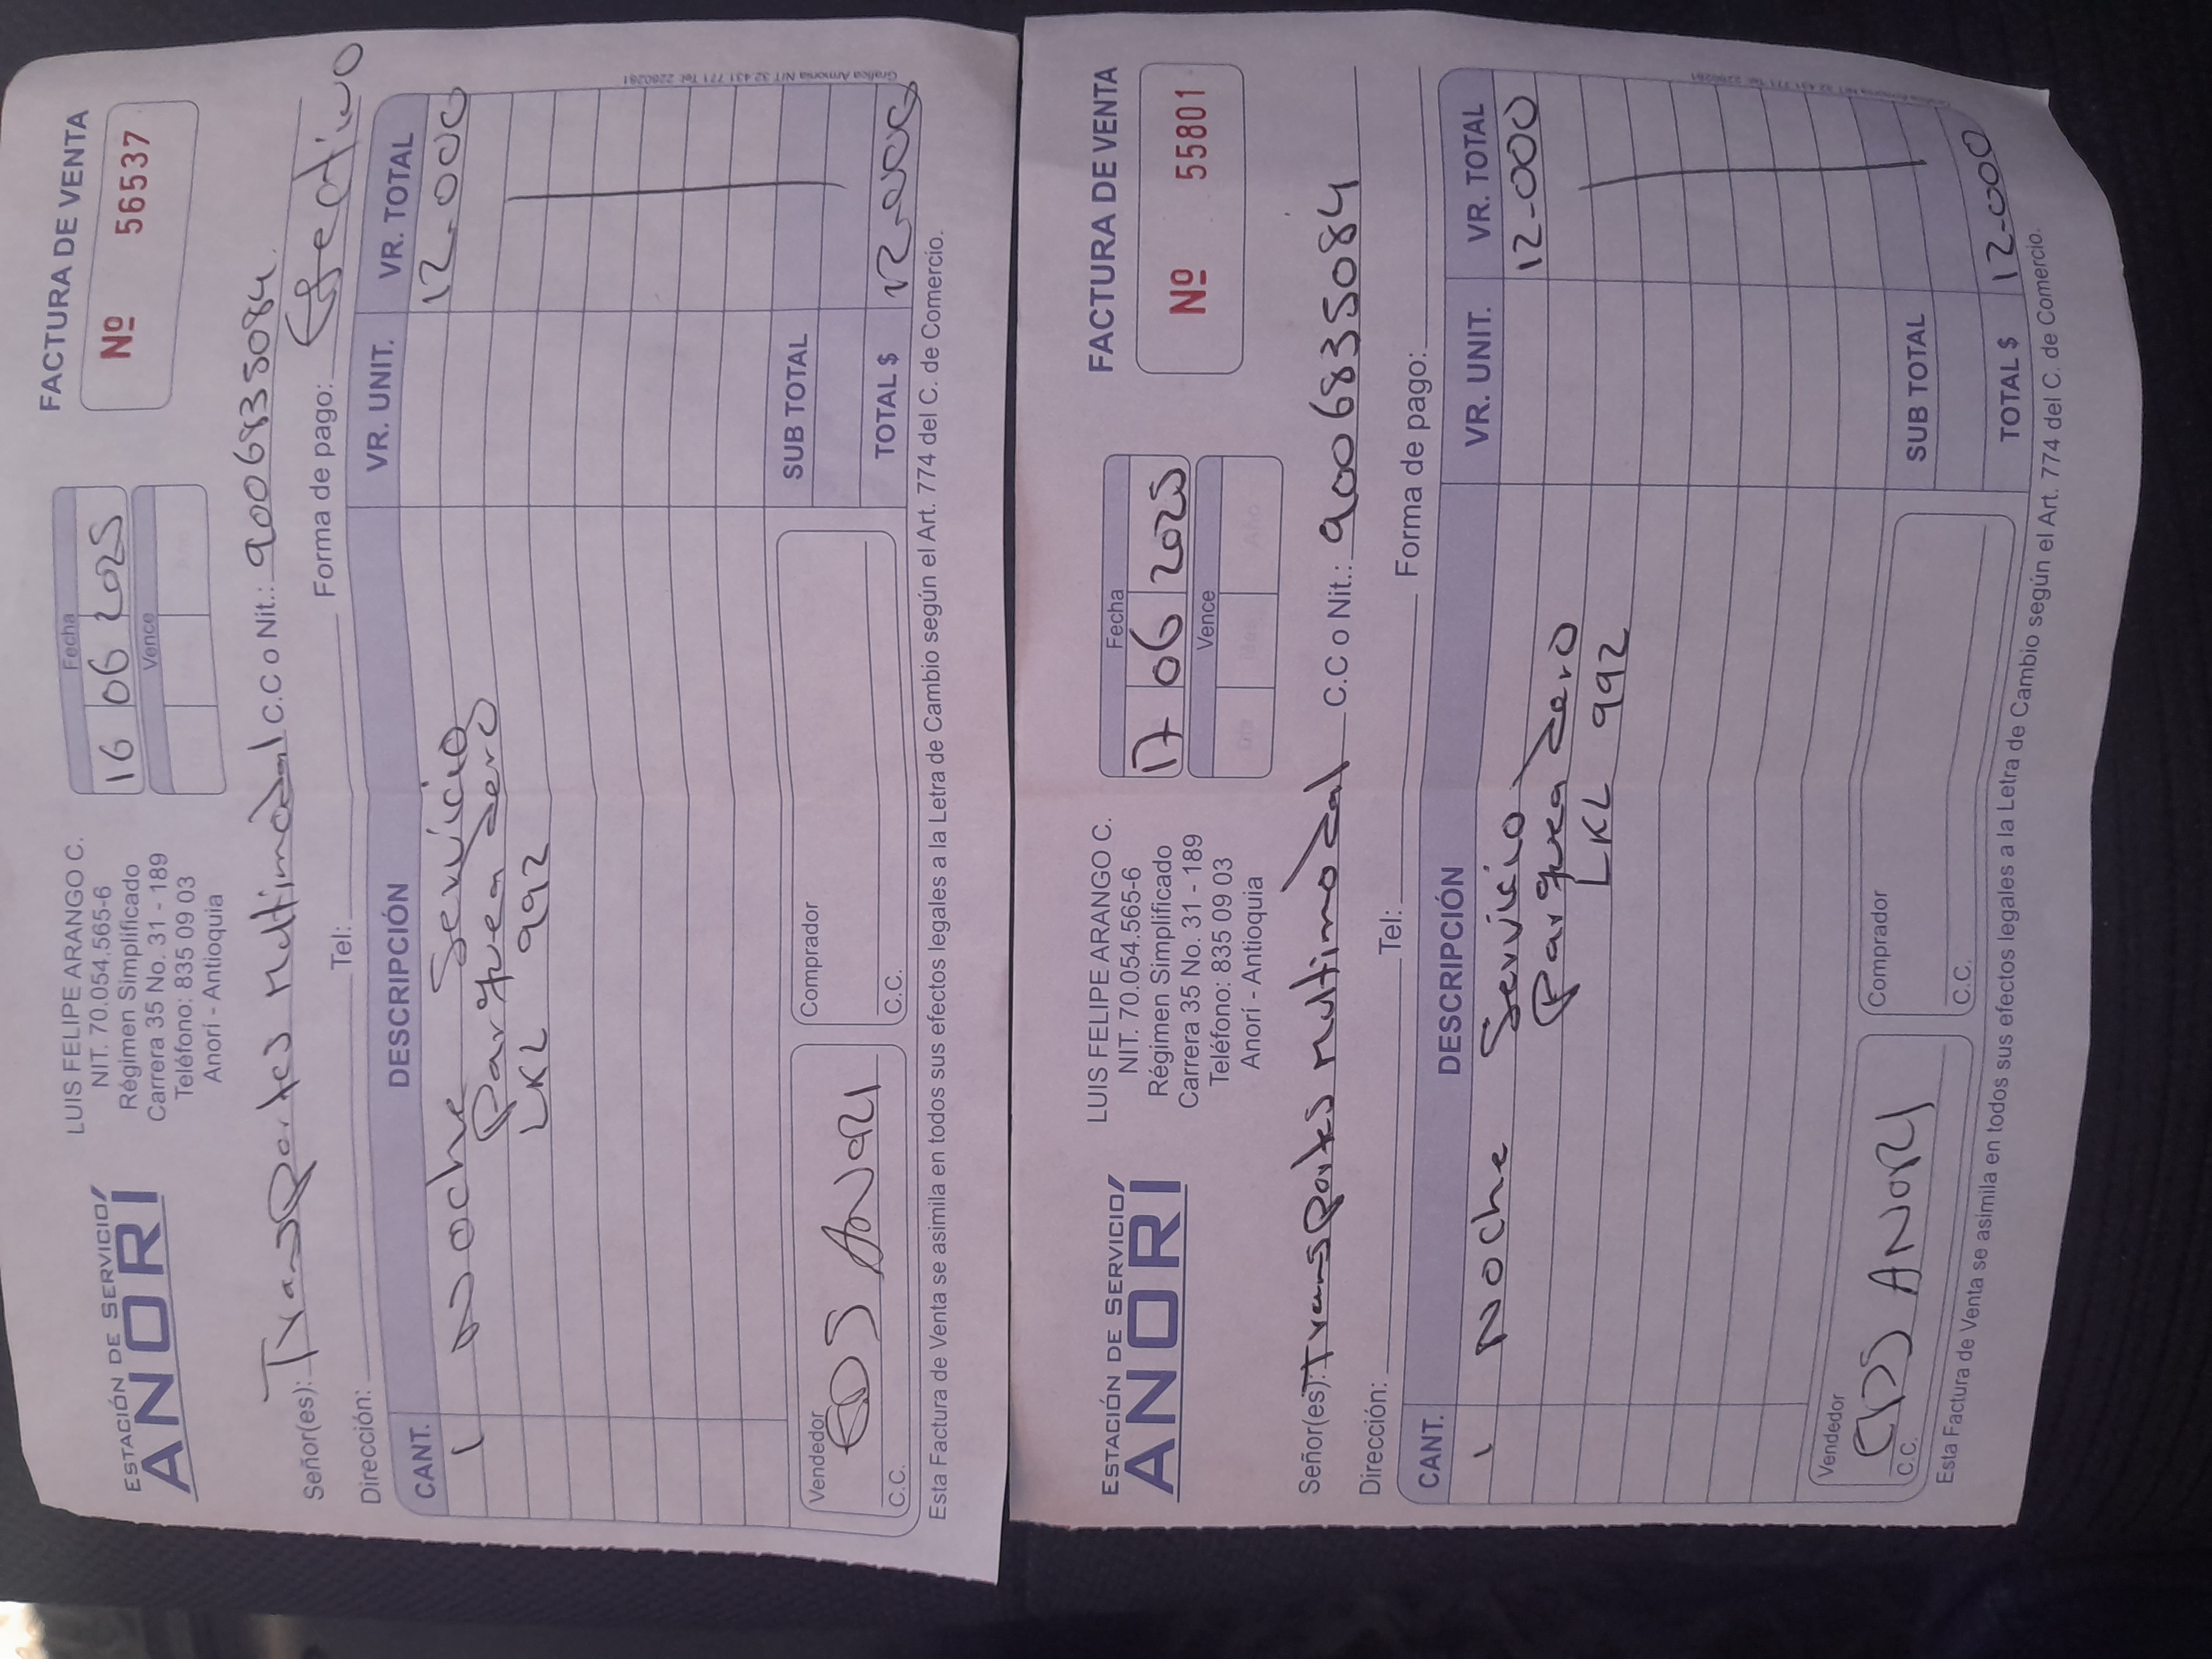 ESTACIÓN DE SERVICIO
ANORÍ
LUIS FELIPE ARANGO C.
NIT. 70.054.565-6
Régimen Simplificado
Carrera 35 No. 31 - 189
Teléfono: 835 09 03
Anorí - Antioquia
Fecha
16 06 2025
Vence
FACTURA DE VENTA
Nº 56537
Señor(es): Transportes Multimodal C.C o Nit.: 9006835084
Dirección: Tel: Forma de pago: Efectivo
CANT. DESCRIPCIÓN VR. UNIT. VR. TOTAL
1 Noche Servicio 12.000
Parqueadero
LKL 992
SUB TOTAL
TOTAL $ 12.000
Vendedor
EDS ANORI
C.C.
Comprador
C.C.
Esta Factura de Venta se asimila en todos sus efectos legales a la Letra de Cambio según el Art. 774 del C. de Comercio.
Grafica Armonia NIT 32 431 771 Tel: 2260261
ESTACIÓN DE SERVICIO
ANORÍ
LUIS FELIPE ARANGO C.
NIT. 70.054.565-6
Régimen Simplificado
Carrera 35 No. 31 - 189
Teléfono: 835 09 03
Anorí - Antioquia
Fecha
17 06 2025
Vence
Día Mes Año
FACTURA DE VENTA
Nº 55801
Señor(es): Transportes Multimodal C.C o Nit.: 9006835084
Dirección: Tel: Forma de pago:
CANT. DESCRIPCIÓN VR. UNIT. VR. TOTAL
1 Noche Servicio 12-000
Parqueadero
LKL 992
SUB TOTAL
TOTAL $ 12-000
Vendedor
EDS ANORI
C.C.
Comprador
C.C.
Esta Factura de Venta se asimila en todos sus efectos legales a la Letra de Cambio según el Art. 774 del C. de Comercio.